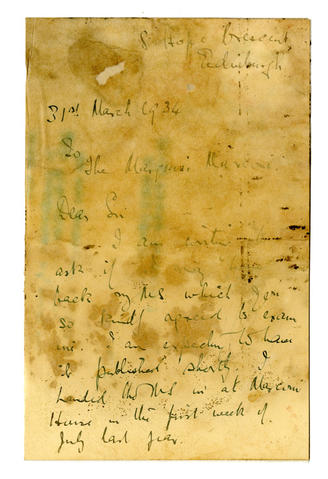 8 Hope Crescent
Edinburgh
31st March 1934
To
The Marquis Marconi
Dear Sir
I am
ask if I may have
back my MS which you
so kindly agreed to exam
ine. I am expecting to have
it published shortly. I
handed the MS in at Marconi
House in the first week of
July last year.